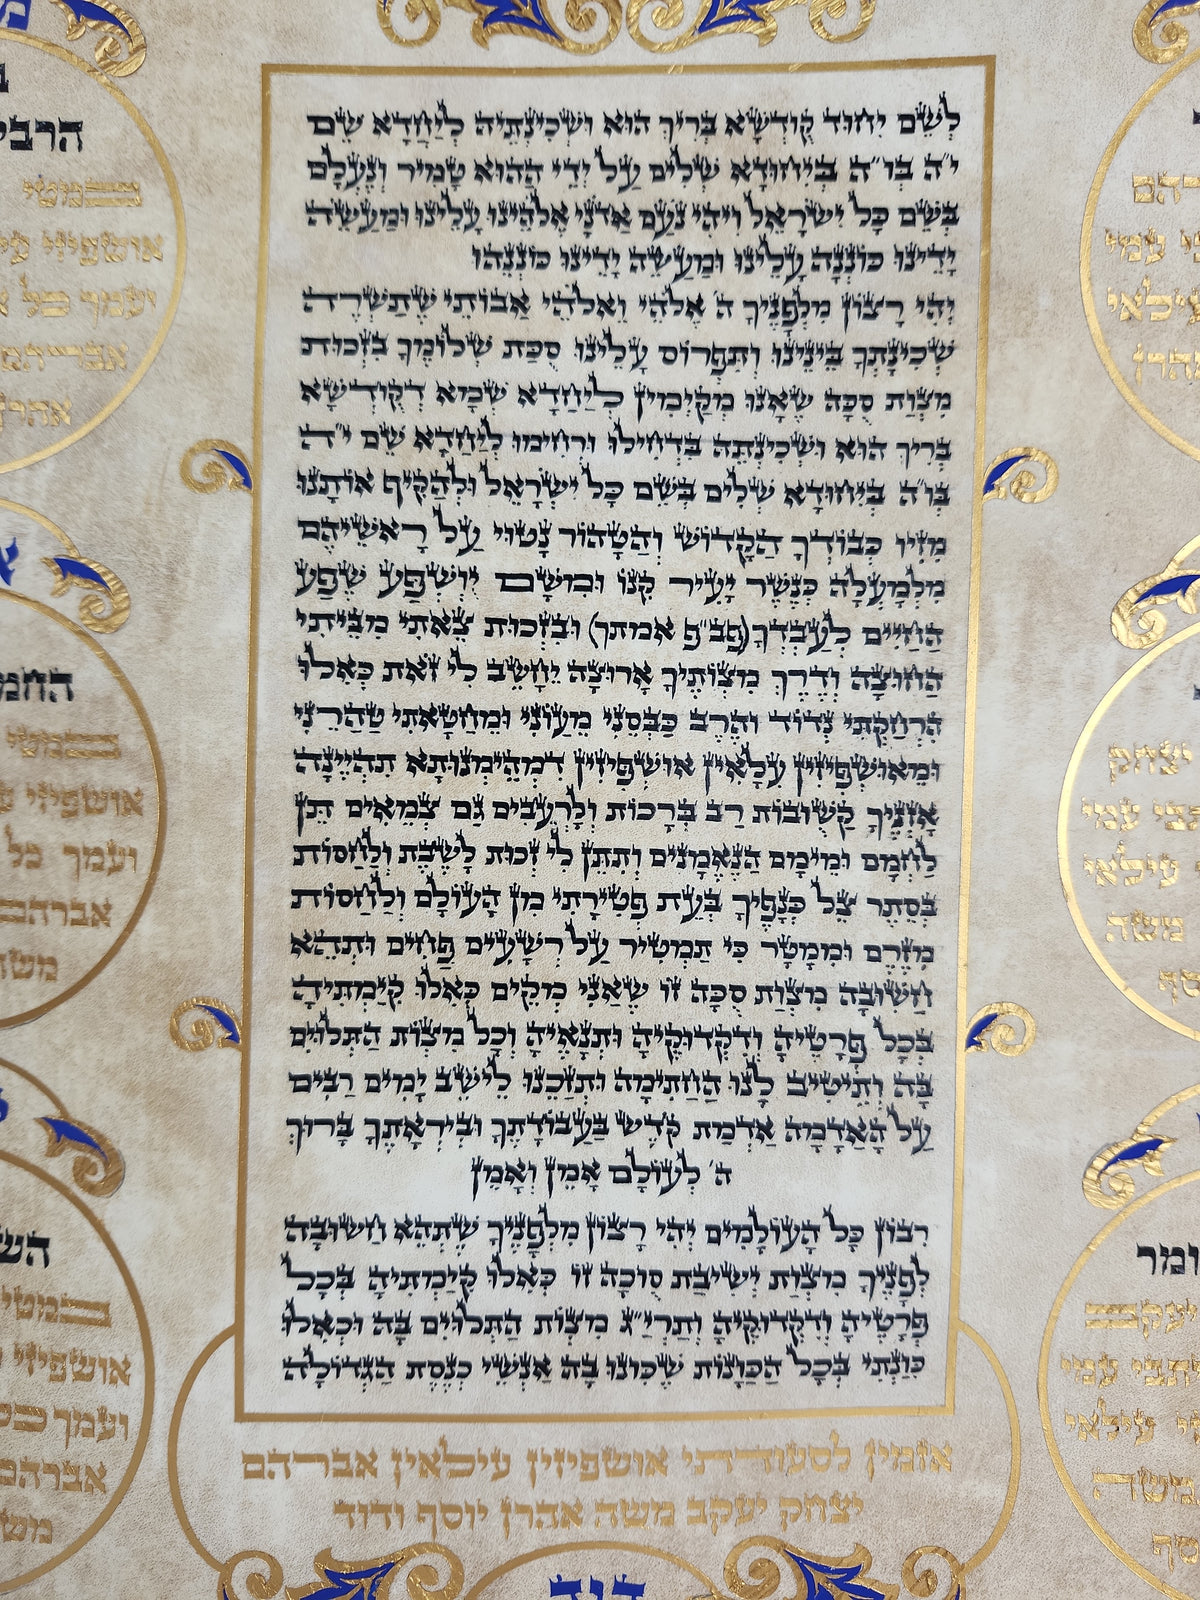 לְשֵׁם יִחוּד קֻודְשָׁא בְּרִיךְ הוּא וּשְׁכִינְתֵּיהּ לְיַחֲדָא שֵׁם
י״ה בְּו״ה בְּיִחוּדָא שְׁלִים עַל יְדֵי הַהוּא טָמִיר וְנֶעְלָם
בְּשֵׁם כָּל יִשְׂרָאֵל וִיהִי נֹעַם אַדֹנָי אֱלֹהֵינוּ עָלֵינוּ וּמַעֲשֵׂה
יָדֵינוּ כּוֹנְנָה עָלֵינוּ וּמַעֲשֵׂה יָדֵינוּ כּוֹנְנֵהוּ
יְהִי רָצוֹן מִלְּפָנֶיךָ ה׳ אֱלֹהַי וֵאלֹהֵי אֲבוֹתַי שֶׁתַּשְׁרֶה
שְׁכִינָתְךָ בֵּינֵינוּ וְתִפְרוֹס עָלֵינוּ סֻכַּת שְׁלוֹמֶךָ בִּזְכוּת
מִצְוַת סֻכָּה שֶׁאָנוּ מְקַיְּמִין לְיַחֲדָא שְׁמָא דְקֻודְשָׁא
בְּרִיךְ הוּא וּשְׁכִינְתֵּהּ בִּדְחִילוּ וּרְחִימוּ לְיַחֲדָא שֵׁם י״ה
בְּו״ה בְּיִחוּדָא שְׁלִים בְּשֵׁם כָּל יִשְׂרָאֵל וּלְהַקִּיף אוֹתָנוּ
מִזִּיו כְּבוֹדְךָ הַקָּדוֹשׁ וְהַטָּהוֹר נָטוּי עַל רָאשֵׁיהֶם
מִלְמָעְלָה כְּנֶשֶׁר יָעִיר קִנּוֹ וּמִשָּׁם יוּשְׁפַּע שֶׁפַע
הַחַיִּים לְעַבְדְּךָ (פב״פ אמתך) וּבִזְכוּת צֵאתִי מִבֵּיתִי
הַחוּצָה וְדֶרֶךְ מִצְוֹתֶיךָ אָרוּצָה יֵחָשֵׁב לִי זֹאת כְּאִלּוּ
הִרְחַקְתִּי נְדוֹד וְהֶרֶב כַּבְּסֵנִי מֵעֲוֹנִי וּמֵחַטָּאתִי טַהֲרֵנִי
וּמֵאוּשְׁפִּיזִין עִלָּאִין אוּשְׁפִּיזִין דִמְהֵימְנוּתָא תִּהְיֶינָה
אָזְנֶיךָ קַשֻּׁובוֹת רַב בְּרָכוֹת וְלָרְעֵבִים גַּם צְמֵאִים תֵּן
לַחְמָם וּמֵימָם הַנֶּאֱמָנִים וְתִתֵּן לִי זְכוּת לָשֶׁבֶת וְלַחֲסוֹת
בְּסֵתֶר צֵל כְּנָפֶיךָ בְּעֵת פְּטִירָתִי מִן הָעוֹלָם וְלַחֲסוֹת
מִזֶּרֶם וּמִמָּטָר כִּי תַמְטִיר עַל רְשָׁעִים פַּחִים וּתְהֵא
חֲשׁוּבָה מִצְוַת סֻכָּה זוֹ שֶׁאֲנִי מְקַיֵּם כְּאִלּוּ קִיַּמְתִּיהָ
בְּכָל פְּרָטֶיהָ וְדִקְדּוּקֶיהָ וּתְנָאֶיהָ וְכָל מִצְוֹת הַתְּלוּיִם
בָּהּ וְתֵיטִיב לָנוּ הַחֲתִימָה וּתְזַכֵּנוּ לֵישֵׁב יָמִים רַבִּים
עַל הָאֲדָמָה אַדְמַת קֹדֶשׁ בַּעֲבוֹדָתֶךָ וּבְיִרְאָתֶךָ בָּרוּךְ
ה׳ לְעוֹלָם אָמֵן וְאָמֵן
רִבּוֹן כָּל הָעוֹלָמִים יְהִי רָצוֹן מִלְּפָנֶיךָ שֶׁתְּהֵא חֲשׁוּבָה
לְפָנֶיךָ מִצְוַת יְשִׁיבַת סֻוכָּה זוֹ כְּאִלּוּ קִיַּמְתִּיהָ בְּכָל
פְּרָטֶיהָ וְדִקְדּוּקֶיהָ וְתַרְיַ״ג מִצְוֹת הַתְּלוּיִם בָּהּ וּכְאִלּוּ
כִּוַּנְתִּי בְּכָל הַכַּוָּנוֹת שֶׁכִּוְּנוּ בָהּ אַנְשֵׁי כְנֶסֶת הַגְּדוֹלָה
אזמין לסעודתי אושפיזין עילאין אברהם
יצחק יעקב משה אהרן יוסף ודוד
דוד